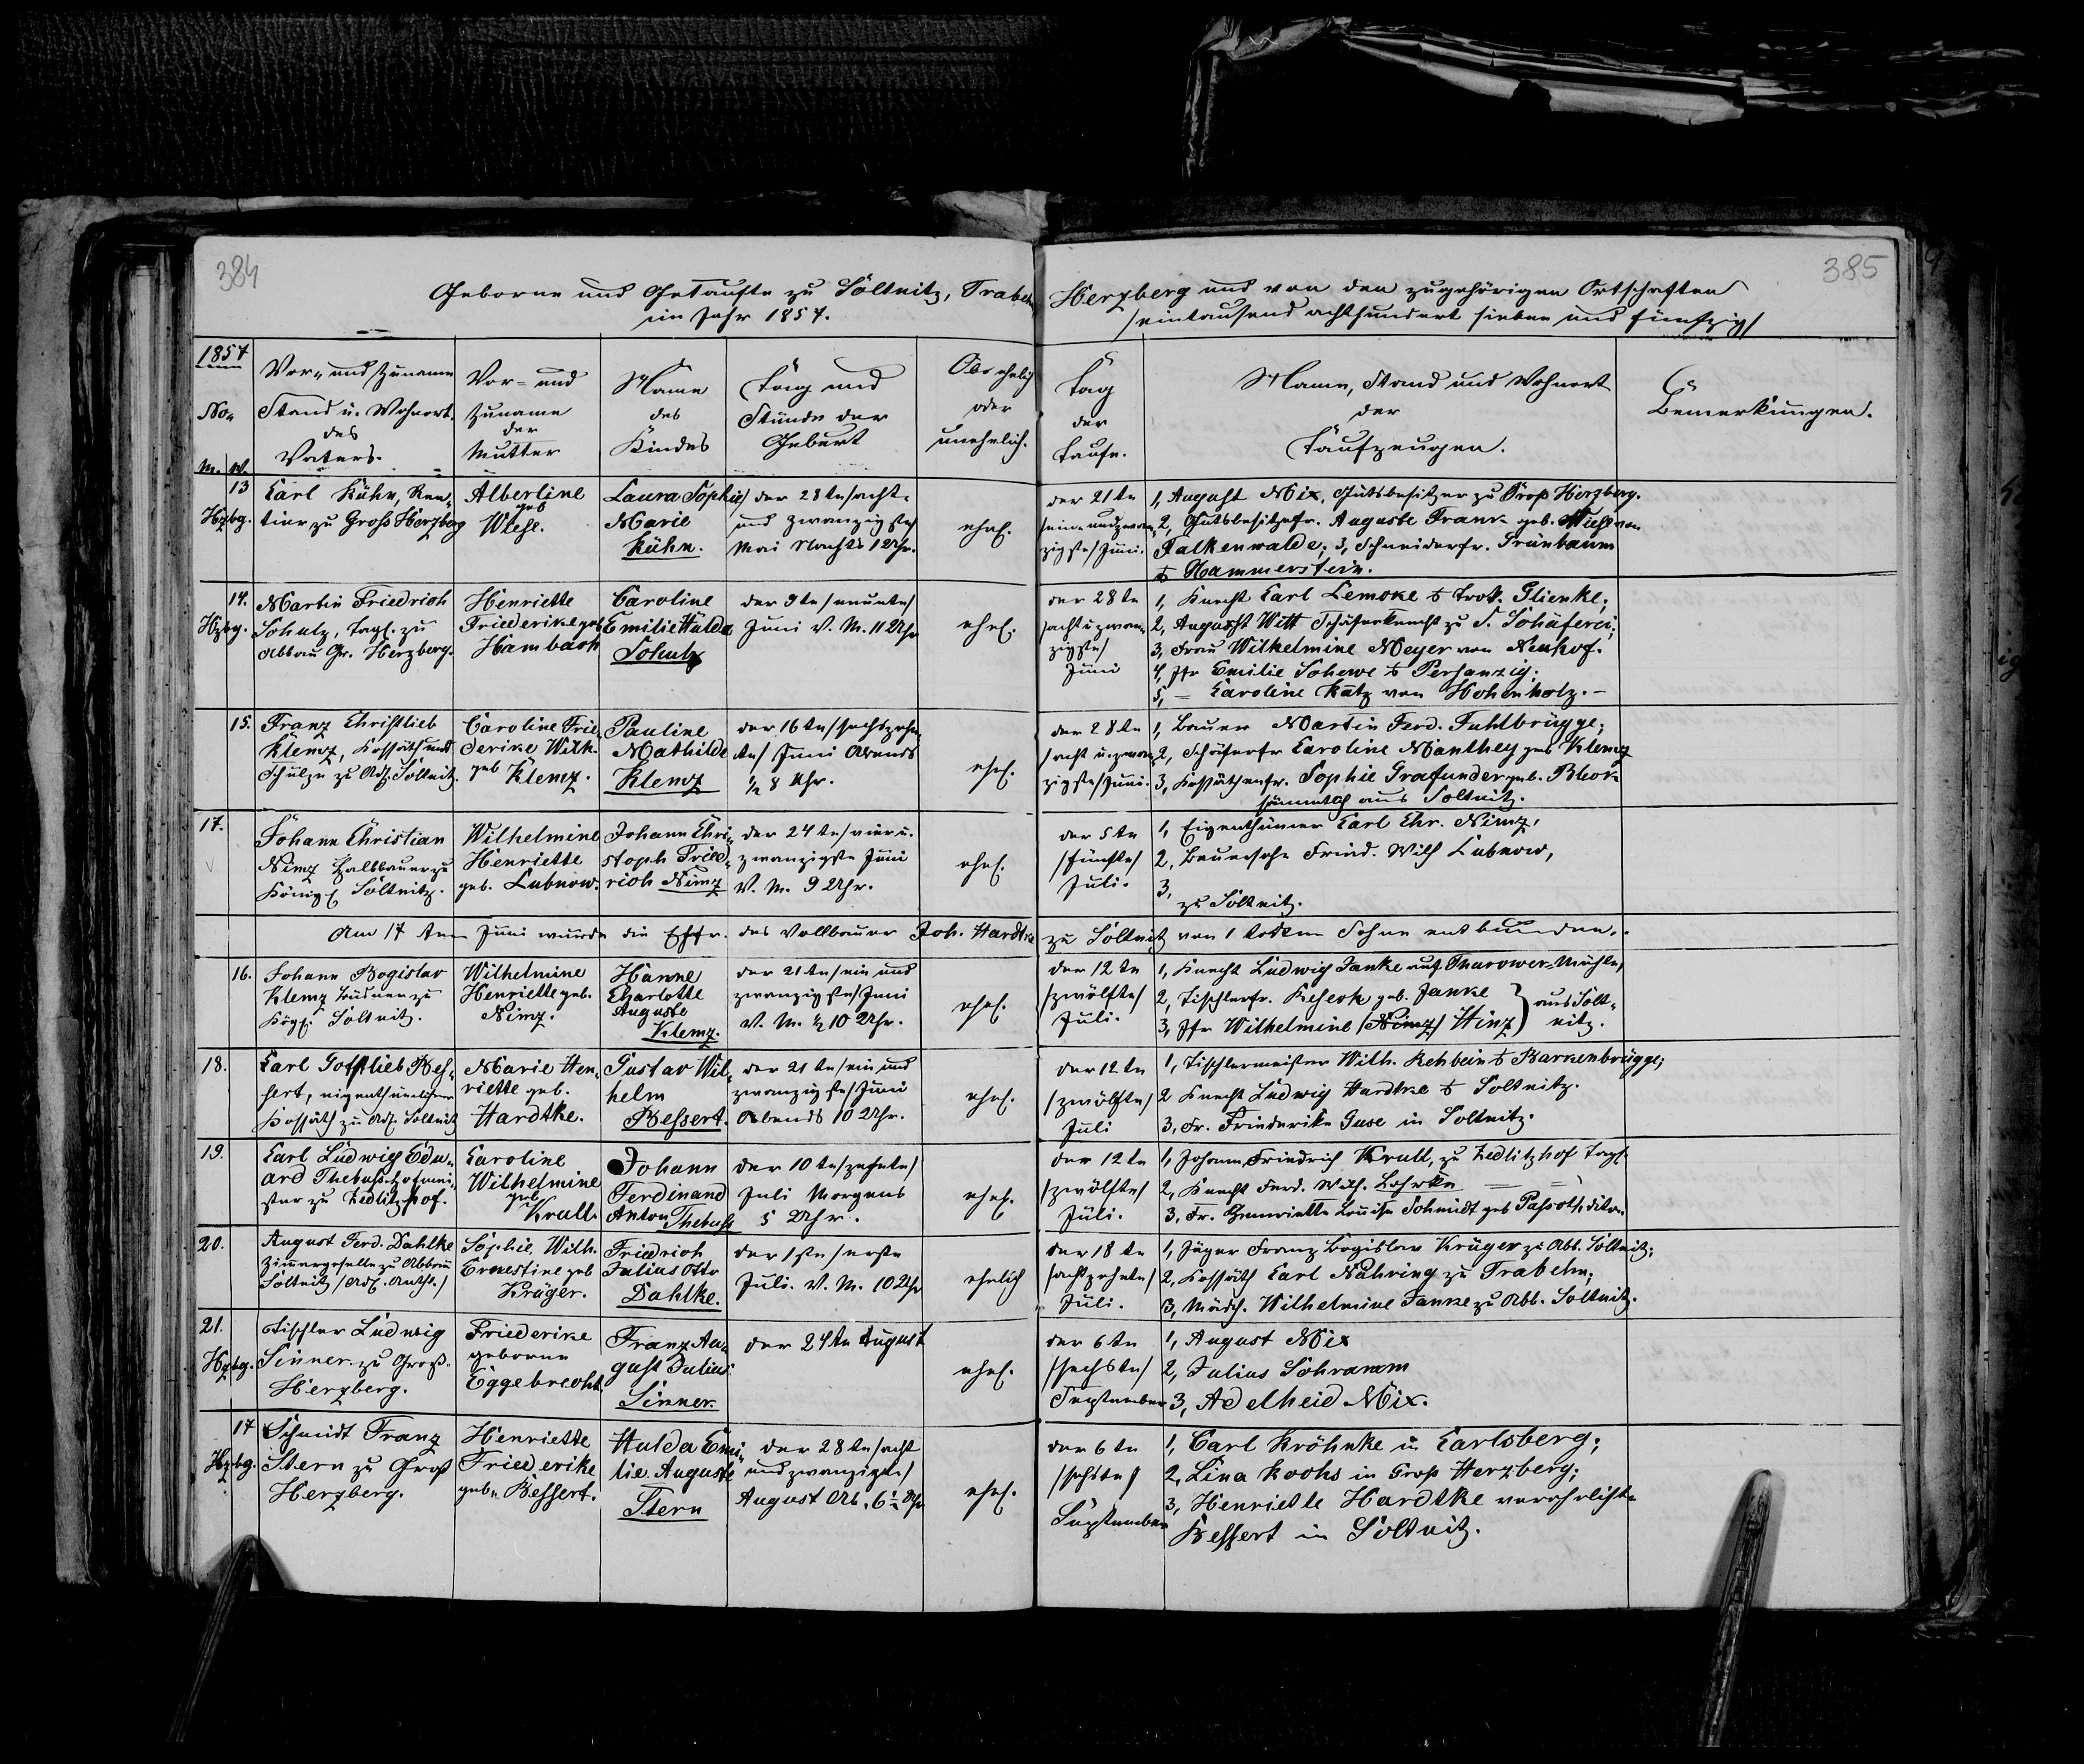 384
385
Geborne und Getaufte zu Soltnitz, Trabehn
im Jahr 1857.
Herzberg und von den zugehörigen Ortschaften
/eintausend achthundert sieben und fünfzig/
1857
No.
M. W.
Vor- und Zuname
Stand u. Wohnort
des
Vaters.
Vor- und
Zuname
der
Mutter
Name
des
Kindes
Tag und
Stunde der
Geburt
Ob ehelich
oder
unehelich.
Tag
der
Taufe.
Name, Stand und Wohnort
der
Taufzeugen.
Bemerkungen.
13
Hzbg.
Carl Kühn, Ren-
tier zu Groß Herzberg
Albertine
geb
Wiese.
Laura Sophie
Marie
Kühn.
der 28te/acht-
und zwanzigste/
Mai Nachts 1 Uhr.
ehel.
der 21te
/ein und zwan-
zigste/Juni.
1, August Mix, Gutsbesitzer zu Groß Herzberg.
2, Gutsbesitzefr. Auguste Frank geb. Wiese von
Falkenwalde; 3, Schneiderfr. Grünbaum
Hammerstein.
14.
Hzbg.
Martin Friedrich
Schulz, Tagl. zu
Abbau Gr. Herzberg.
Henriette
Friederike geb
Hambach
Caroline
Emilie Hulda
Schulz
der 9te/neunte/
Juni V. M. 11 Uhr
ehel.
der 28te
/acht u zwan-
zigste/
Juni
1, Knecht Carl Lemcke Glienke;
2, August Witt Schäferknecht zu S. Schäferei;
3, Frau Wilhelmine Meyer von Neuhof.
4, Jfr Emilie Schewe Persanzig;
5, — Caroline Katz von Hohenholz. —
15.
Franz Christlieb
Klemz, Kossäth und
Schulze zu Adl. Soltnitz.
Caroline Frie-
derike Wilh.
geb Klemz.
Pauline
Mathilde
Klemz
der 16te/sechszehn-
te/ Juni Abends
½ 8 Uhr.
ehel.
der 28te
/acht u. zwan-
zigste/Juni.
1, Bauer Martin Ferd. Fuhlbrügge;
2, Schäferfr Caroline Manthey geb Klemz
3, Kossäthenfr. Sophie Grafunder geb. Block
sämmtlich aus Soltnitz.
17.
Johann Christian
Nimz Halbbauer zu
Königl Soltnitz.
Wilhelmine
Henriette
geb. Lubnow.
Johann Chri-
stoph Fried-
rich Nimz
der 24te/vier u.
zwanzigste Juni
V. M. 9 Uhr.
ehel.
der 5te
/fünfte/
Juli.
1, Eigenthümer Carl Chr. Nimz,
2, Bauersohn Fried. Wilh Lubnow,
3,
zu Soltnitz.
Am 17ten Juni wurde die Ehefr. des Vollbauer Joh. Hardtke
zu Soltnitz von 1 todten Sohne entbunden.
16.
Johann Bogislav
Klemz Büdner zu
Kögl. Soltnitz.
Wilhelmine
Henriette geb.
Nimz.
Hanne
Charlotte
Auguste
Klemz.
der 21te/ein und
zwanzigste/Juni
V. M. ½ 10 Uhr.
ehel.
der 12te
/zwölfte/
Juli.
1, Knecht Ludwig Janke auf Thurower-Mühle,
2, Tischlerfr. Keseck geb. Janke
3, Jfr Wilhelmine (Nimz) Hinz
aus Solt-
nitz.
18.
Carl Gottlieb Bes-
sert, eigenthümlicher
Kossäth zu Adl. Soltnitz
Marie Hen-
riette geb.
Hardtke.
Gustav Wil-
helm
Bessert.
der 21te/ein und
zwanzigste/Juni
Abends 10 Uhr.
ehel.
der 12te
/zwölfte/
Juli
1, Tischlermeister Wilh. Rehbein Barkenbrügge;
2 Knecht Ludwig Hardtke Soltnitz.
3, Fr. Friederike Guse in Soltnitz.
19.
Carl Ludwig Edu-
ard Thebuss Hofmei-
ster zu Zedlitzhof.
Caroline
Wilhelmine
geb
Krull.
Johann
Ferdinand
Anton Thebuss
der 10te/zehnte/
Juli Morgens
5 Uhr.
ehel.
der 12te
/zwölfte/
Juli.
1, Johann Friedrich Krull, zu Zedlitzhof Tagl.
2, Knecht Ferd. Wilh. Lohrke — =
3, Fr. Henriette Louise Schmidt geb Passoth, dito.
20.
August Ferd. Dahlke
Zimmergeselle zu Abbau
Soltnitz /Adl. Anths./
Sophie Wilh.
Ernestine geb
Krüger.
Friedrich
Julius Otto
Dahlke.
der 1ste/erste
Juli. V. M. 10 Uhr
ehelich
der 18te
/achtzehnte/
Juli.
1, Jäger Franz Bogislav Krüger zu Abb. Soltnitz;
2, Kossäth Carl Nähring zu Trabehn;
3, Mädch. Wilhelmine Janke zu Abb. Soltnitz.
21.
Hzbg.
Tischler Ludwig
Sinner zu Groß-
Herzberg.
Friederike
geborne
Eggebrecht
Franz Au-
gust Julius
Sinner
der 24te August
ehel.
der 6te
/sechste/
September
1, August Mix
2, Julius Schramm
3, Adelheid Mix.
17
Hzbg.
Schmidt Franz
Stern zu Groß
Herzberg.
Henriette
Friederike
geb. Bessert.
Hulda Emi-
lie Auguste
Stern
der 28te/acht
und zwanzigste/
August Ab. 6½ Uhr
ehel.
der 6te
/sechste/
September
1, Carl Kröhnke in Carlsberg;
2, Lina Koohs in Groß Herzberg;
3, Henriette Hardtke verehelichte
Bessert in Soltnitz.